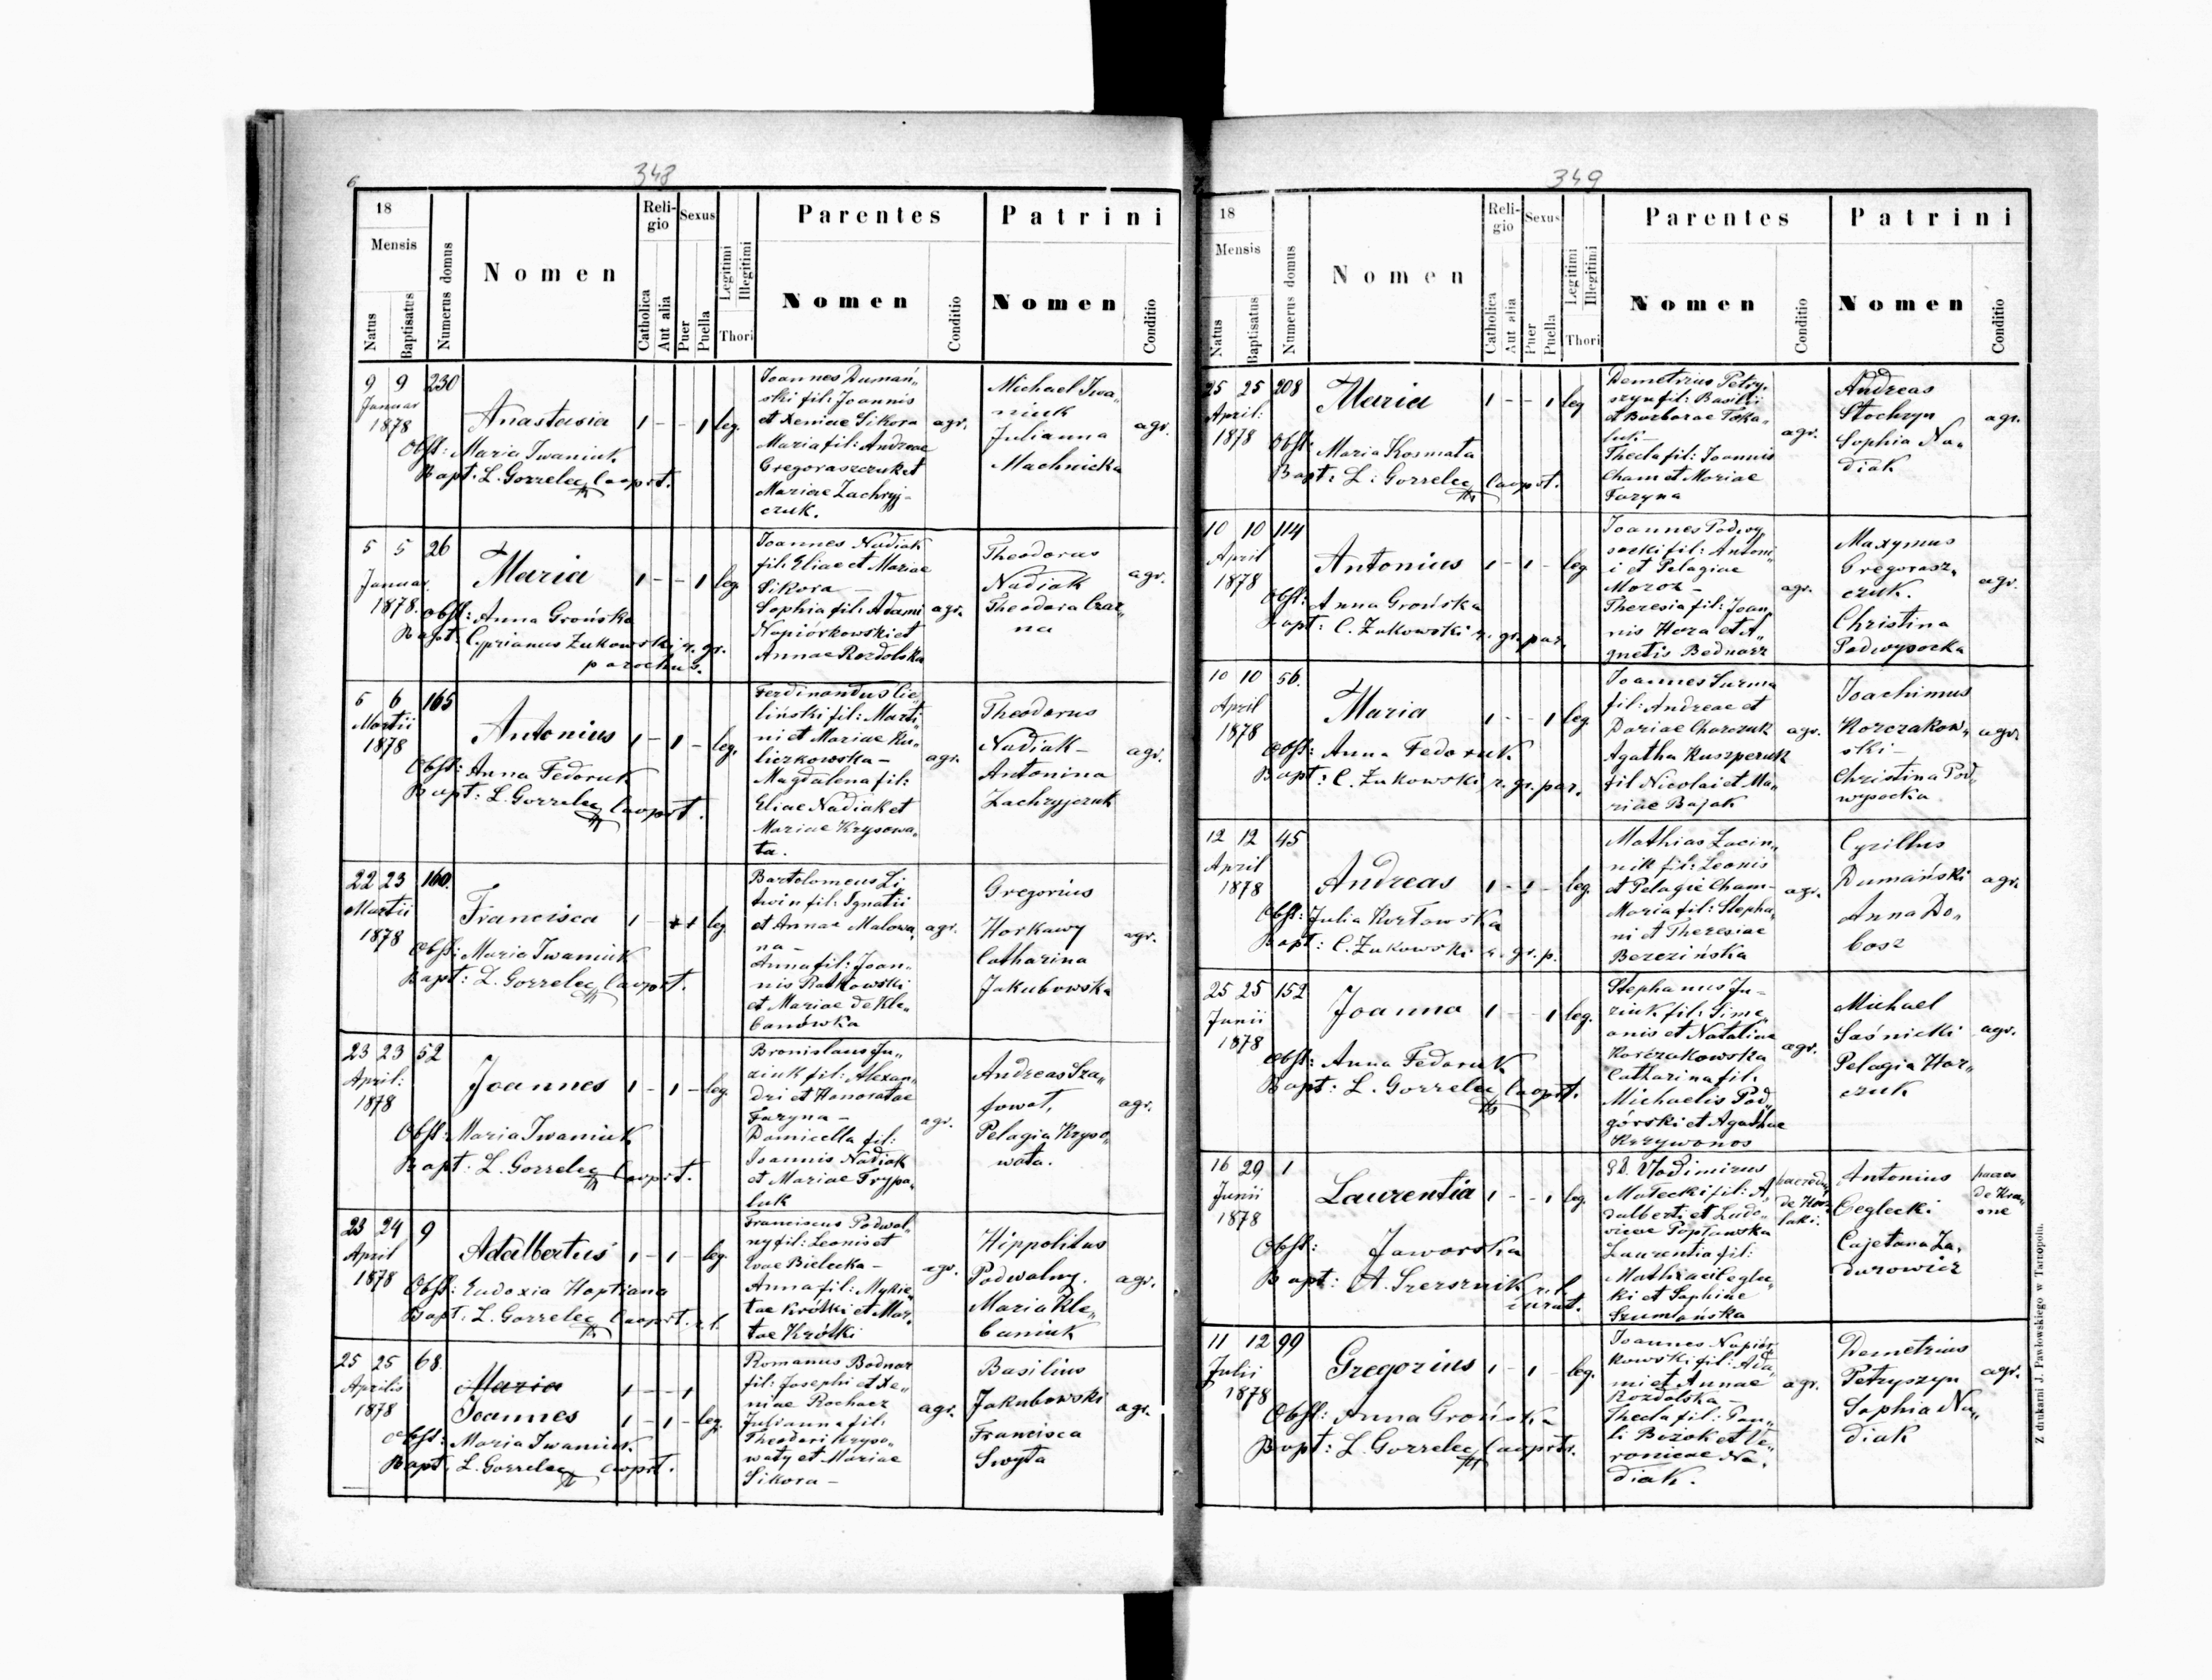 6
348
18
Mensis
Natus
Baptisatus
Numerus domus
Nomen
Religio
Catholica
Aut alia
Sexus
Puer
Puella
Legitimi
Illegitimi
Thori
Parentes
Nomen
Conditio
Patrini
Nomen
Conditio
9 9 230
Januar
1878
Anastasia 1 - - 1 leg.
Obst: Maria Iwaniuk
Bapt: L. Gorzelec Cooprt.
Joannes Dumań„
ski fil: Joannis
et Xeniae Sikora
Maria fil: Andreae
Gregoraszczuk et
Mariae Zachryj-
czuk.
agr.
Michael Iwa„
niuk
Julianna
Machnicka
agr.
5 5 26
Januar
1878.
Maria 1 - - 1 leg.
Obst: Anna Grońska
Bapt: Cyprianus Żukowski r. gr.
parochus.
Joannes Nadiak
fil: Eliae et Mariae
Sikora —
Sophia fil: Adami
Napiórkowski et
Annae Rozdolska
agr.
Theodorus
Nadiak
Theodora Czar„
na
agr.
5 6 165
Martii
1878
Antonius 1 - 1 - leg.
Obst: Anna Fedoruk
Bapt: L. Gorzelec Cooprt.
Ferdinandus Cie„
liński fil: Marti„
ni et Mariae Ku„
liczkowska -
Magdalena fil:
Eliae Nadiak et
Mariae Krysowa„
ta.
agr.
Theodorus
Nadiak -
Antonina
Zachryjczuk
agr.
22 23 160.
Martii
1878
Francisca 1 - + 1 leg.
Obst: Maria Iwaniuk
Bapt: L. Gorzelec Cooprt.
Bartolomeus Li„
twin fil: Ignatii
et Annae Malowa„
na -
Anna fil: Joan„
nis Ratkowski
et Mariae de Kle„
banówka
agr.
Gregorius
Horkawy
Catharina
Jakubowska
agr.
23 23 52
April:
1878
Joannes 1 - 1 - leg.
Obst: Maria Iwaniuk
Bapt: L. Gorzelec Cooprt.
Bronislaus Ju„
ziuk fil: Alexan„
dri et Honoratae
Faryna -
Domicella fil:
Joannis Nadiak
et Mariae Trypa„
luk
agr.
Andreas Sza„
fowat,
Pelagia Kryso„
wata.
agr.
23 24 9
April
1878
Adalbertus 1 - 1 - leg.
Obst: Eudoxia Hoptiana
Bapt. L. Gorzelec Cooprt. r.l.
Franciscus Podwal„
ny fil: Leonis et
Evae Bielecka -
Anna fil: Mykie„
tae Krótki et Mar„
tae Krótki
agr.
Hippolitus
Podwalny.
Maria Kle„
baniuk
agr.
25 25 68.
Aprilis
1878
Maria 1 - - 1
Joannes 1 - 1 - leg.
Obst: Maria Iwaniuk
Bapt. L. Gorzelec Cooprt.
Romanus Bodnar
fil: Josephi et Xe„
niae Rochacz
Julianna fil:
Theodori Kryso„
waty et Mariae
Sikora -
agr.
Basilius
Jakubowski
Francisca
Swyta
agr.
349
18
Mensis
Natus
Baptisatus
Numerus domus
Nomen
Religio
Catholica
Aut alia
Sexus
Puer
Puella
Legitimi
Illegitimi
Thori
Parentes
Nomen
Conditio
Patrini
Nomen
Conditio
25 25 208
April:
1878
Maria 1 - - 1 leg
Obst: Maria Kosmata
Bapt: L: Gorzelec Cooprt.
Demetrius Petry„
szyn fil: Basilii
et Barbarae
luk -
Thecla fil: Joannis
Cham et Mariae
Faryna
agr.
Andreas
Stochryn
Sophia Na„
diak
agr.
10 10 114
April
1878
Antonius 1 - 1 - leg
Obst: Anna Grońska
Bapt: C. Żukowski r. gr. par.
Joannes Podwy„
socki fil: Antoni„
i et Pelagiae
Moroz -
Theresia fil: Joan„
nis Hora et A„
gnetis Bednarz
agr.
Maxymus
Gregorasz„
czuk.
Christina
Podwysocka
agr.
10 10 56.
April
1878
Maria 1 - - 1 leg.
Obst: Anna Fedoruk
Bapt: C. Żukowski r. gr. par.
Joannes Surma
fil: Andreae et
Dariae Charczuk
Agatha Kuszperuk
fil Nicolai et Ma„
riae Bajak
agr.
Joachimus
Korczakow„
ski -
Christina Pod„
wysocka
agr.
12 12 45
April
1878
Andreas 1 - 1 - leg.
Obst: Julia Kozłowska
Bapt: C. Żukowski r. gr. p.
Mathias Zacin„
nik fil: Leonis
et Pelagie Cham -
Maria fil: Stepha„
ni et Theresiae
Berezińska
agr.
Cyrillus
Dumański
Anna Do„
bosz
agr.
25 25 152
Junii
1878
Joanna 1 - - 1 leg.
Obst: Anna Fedoruk
Bapt: L. Gorzelec Cooprt.
Stephanus Ju-
ziuk fil: Sime„
onis et Nataliae
Korczakowska
Catharina fil:
Michaelis Pod„
górski et Agathae
Krzywonos
agr.
Michael
Saśnicki
Pelagia Hor„
czuk
agr.
16 29 1
Junii
1878
Laurentia 1 - - 1 leg.
Obst: Jaworska
Bapt: A. Szersznik r. l.
curat.
Vlodimirus
Małecki fil: A„
dalberti et Ludo„
vicae Popławska
Laurentia fil:
Mathiae Ceglec„
ki et Sophiae
Szumlańska
de
Antonius
Ceglecki
Cajetana Za„
durowicz
haeres
de Kras
ne
11 12 99
Julii
1878
Gregorius 1 - 1 - leg.
Obst: Anna Grońska
Bapt: L. Gorzelec Cooprtr.
Joannes Napiór„
kowski fil: Ada„
mi et Annae
Rozdolska -
Thecla fil: Pau„
li Bozok et Ve„
ronicae Na„
diak.
agr.
Demetrius
Petryszyn
Sophia Na„
diak
agr.
Z drukarni J. Pawłowskiego w Tarnopolu.